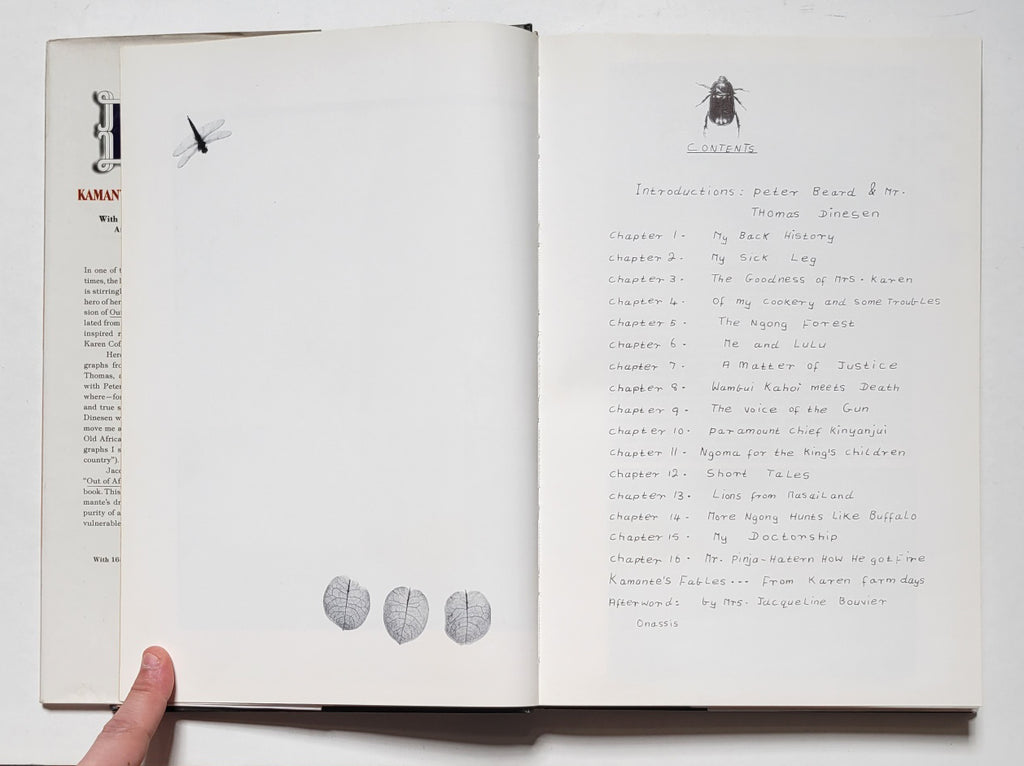 KAMAN
With
A
In one of t
times, the
is stirringl
hero of her
sion of Out
lated from
inspired r
Karen Cof
Here
graphs fro
Thomas, a
with Peter
where—for
and true s
Dinesen w
move me a
Old Africa
graphs I s
country").
Jac
"Out of Af
book. This
mante's dr
purity of a
vulnerable
With 16
CONTENTS
Introductions: Peter Beard & Mr.
Thomas Dinesen
Chapter 1. My Back History
Chapter 2. My Sick Leg
Chapter 3. The Goodness of Mrs. Karen
Chapter 4. Of my cookery and some Troubles
Chapter 5. The Ngong Forest
Chapter 6. Me and Lulu
Chapter 7. A Matter of Justice
Chapter 8. Wambui Kahoi meets Death
Chapter 9. The voice of the Gun
Chapter 10. Paramount Chief Kinyanjui
Chapter 11. Ngoma for the King's Children
Chapter 12. Short Tales
Chapter 13. Lions from Masailand
Chapter 14. More Ngong Hunts Like Buffalo
Chapter 15. My Doctorship
Chapter 16. Mr. Pinja-Hatern How He got Fire
Kamante's Fables... From Karen farm days
Afterword: by Mrs. Jacqueline Bouvier
Onassis